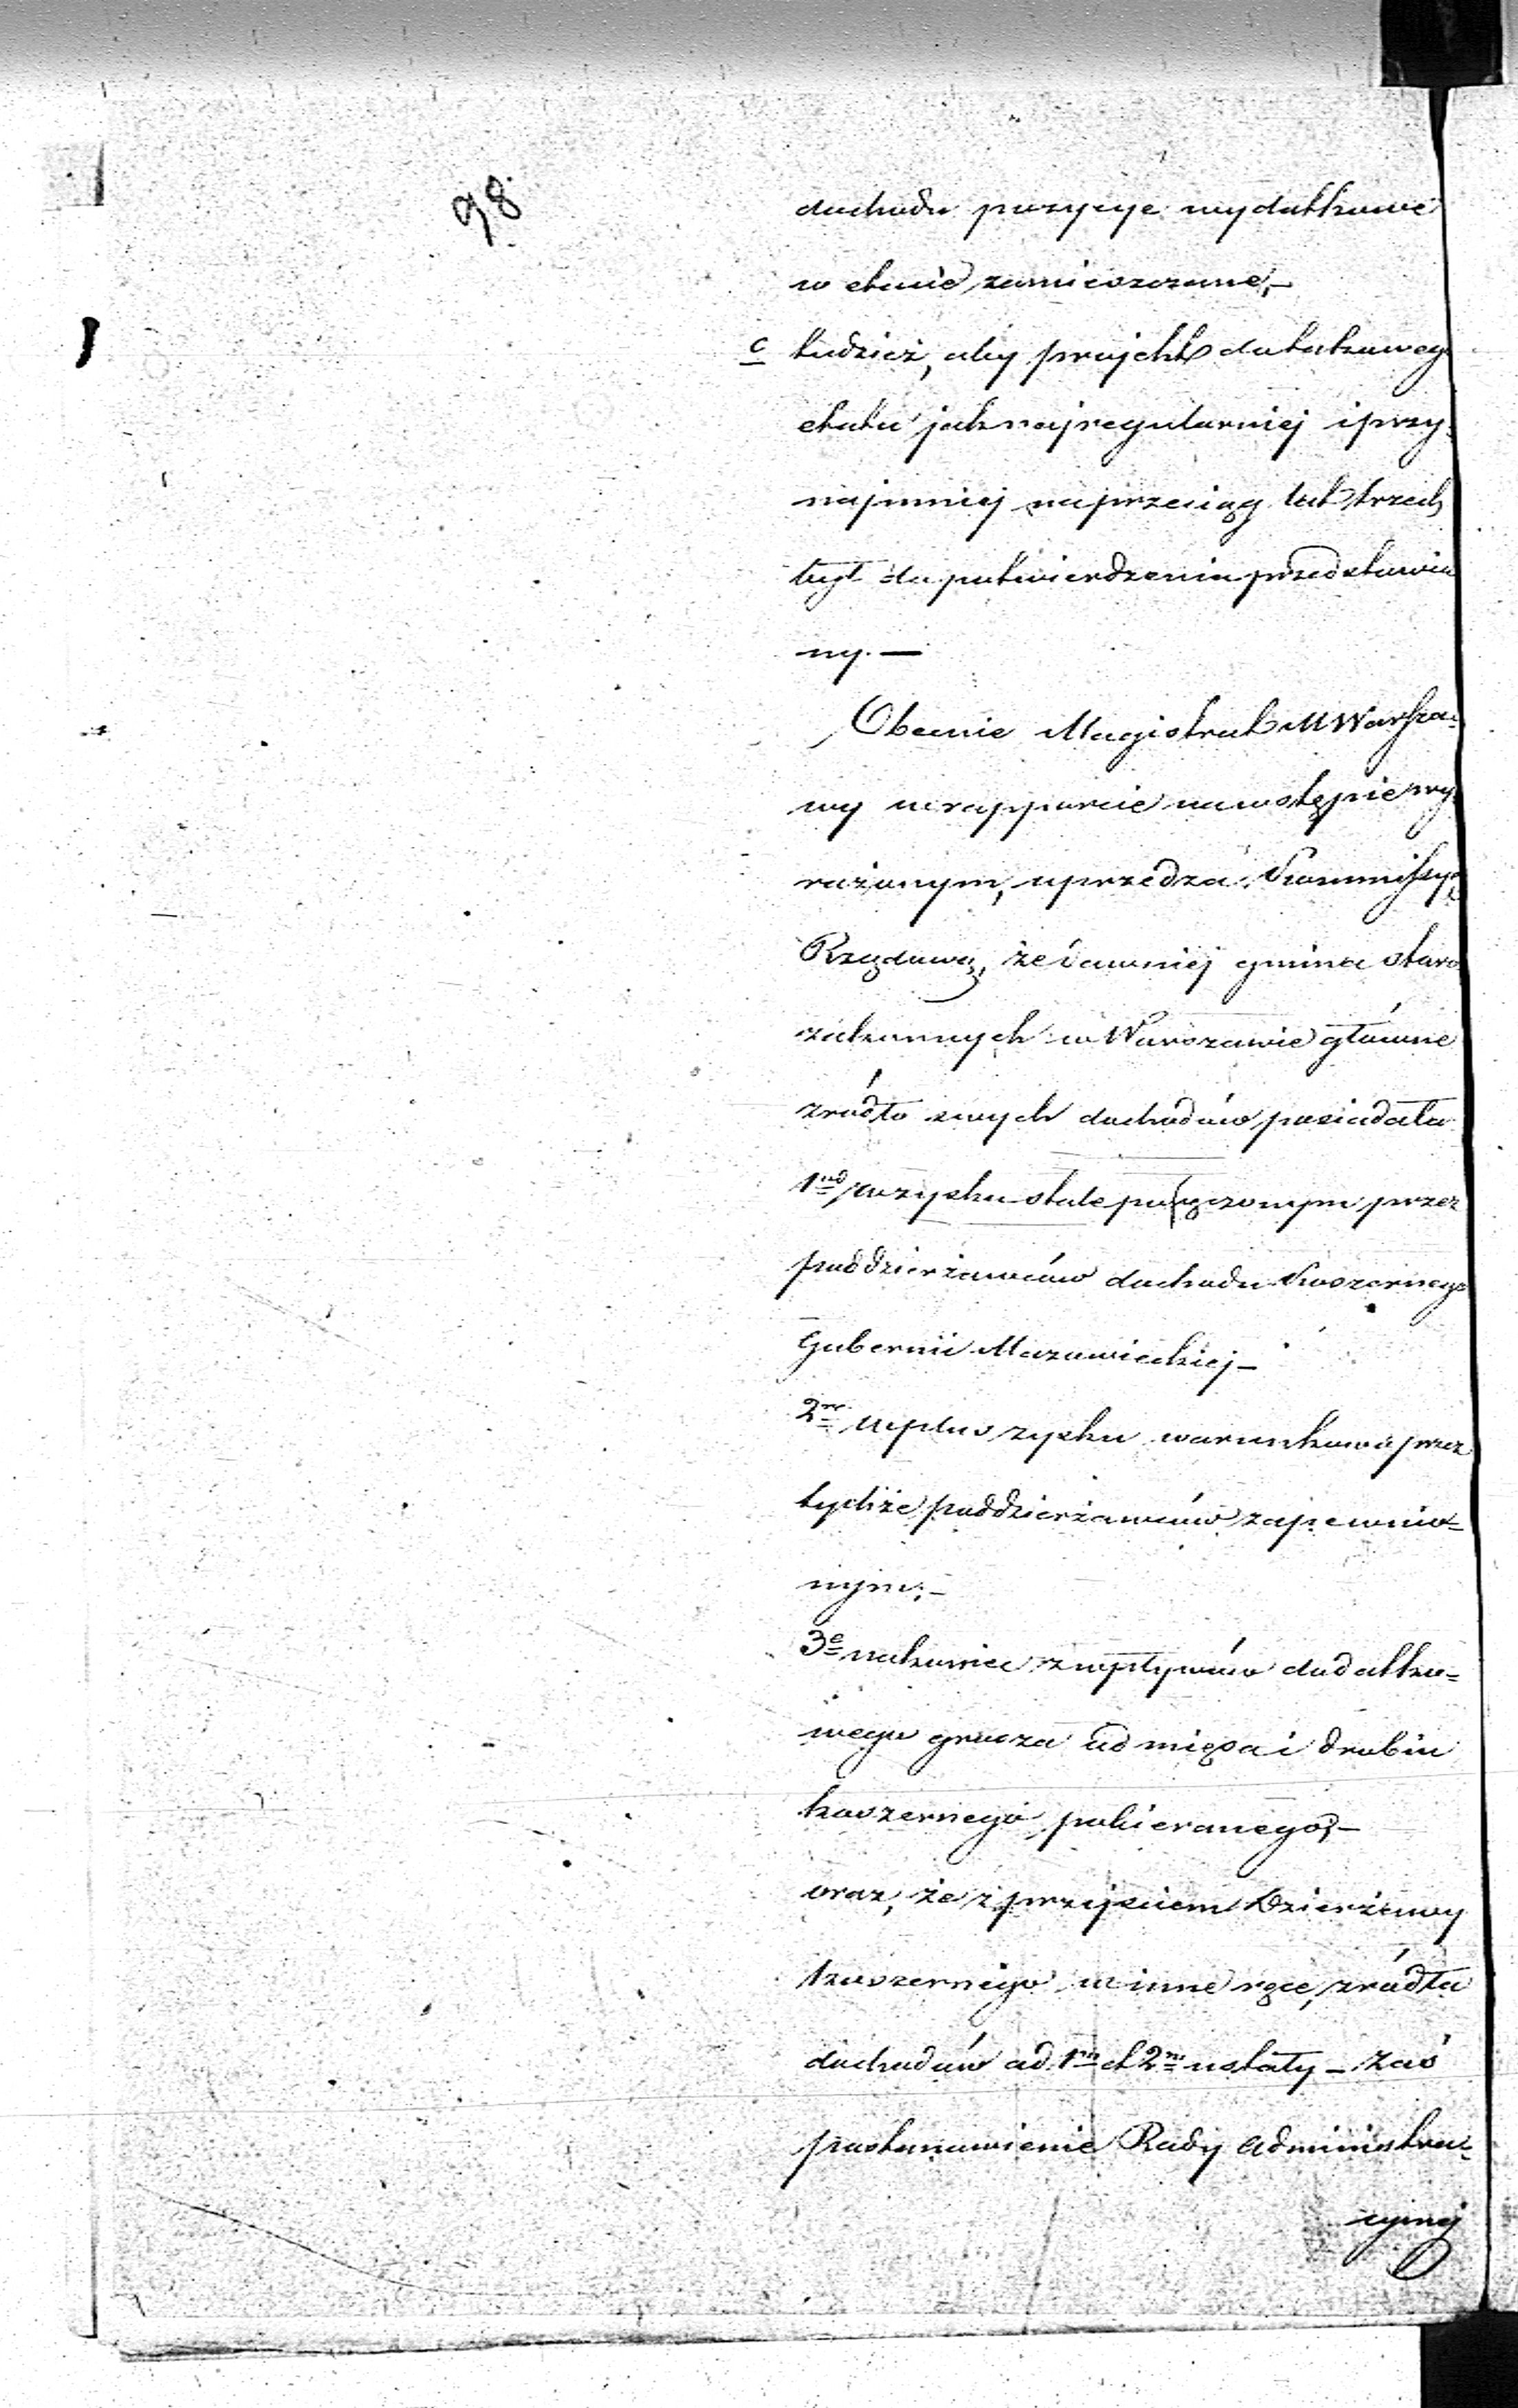 98
dochodu pozycye wydatkowe
w etacie zamieszczone,–
c tudzież, aby projekt dotakowego
etatu jaknajregularniej i przy-
najmniej na przeciąg lat trzech
był do potwierdzenia przedstawio
ny. —
Obecnie Magistrat M Warsza-
wy w rapporcie na wstępie wy-
rażonym, uprzedza Kommissyą
Rządową, że dawniej gmina staro
zakonnych w Warszawie główne
źródło swych dochodów posiadała
1nd w zysku stale poręczonym przez
poddzierżawców dochodu Koszernego
Gubernii Mazowieckiej –
2re w plus zysku warunkowo przez
tychże poddzierżawców zapewnio=
nym; –
3e nakoniec z wpływów dodatko=
wego grosza od mięsa i drobiu
koszernego pobieranego, –
oraz, że z przejściem Dzierżawy
koszernego w inne ręce, źródła
dochodów ad 1m et 2m ustały – zaś
postanowienie Rady Administra=
cyjnej